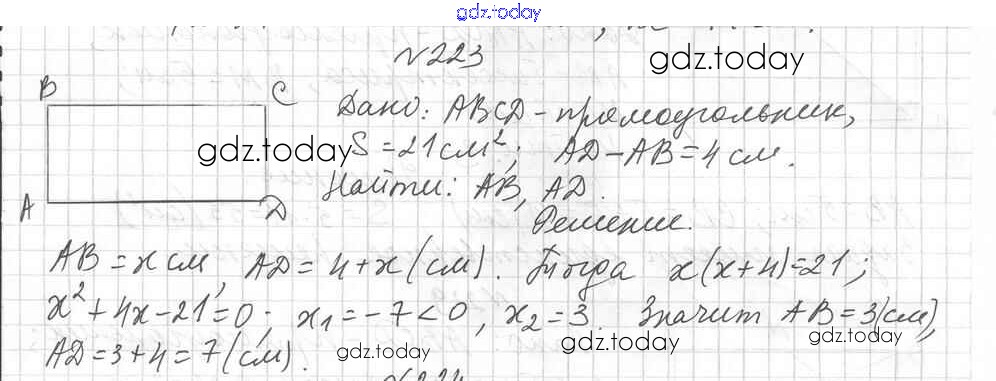 gdz.today
№223
gdz.today
B C
Дано: ABCD - прямоугольник,
gdz.today
S = 21 см²; AD - AB = 4 см.
Найти: AB, AD.
A D
Решение.
AB = x см, AD = 4 + x (см). Тогда x(x+4) = 21;
x² + 4x - 21 = 0; x₁ = -7 < 0, x₂ = 3. Значит AB = 3(см),
AD = 3 + 4 = 7 (см).
gdz.today gdz.today gdz.today
№224